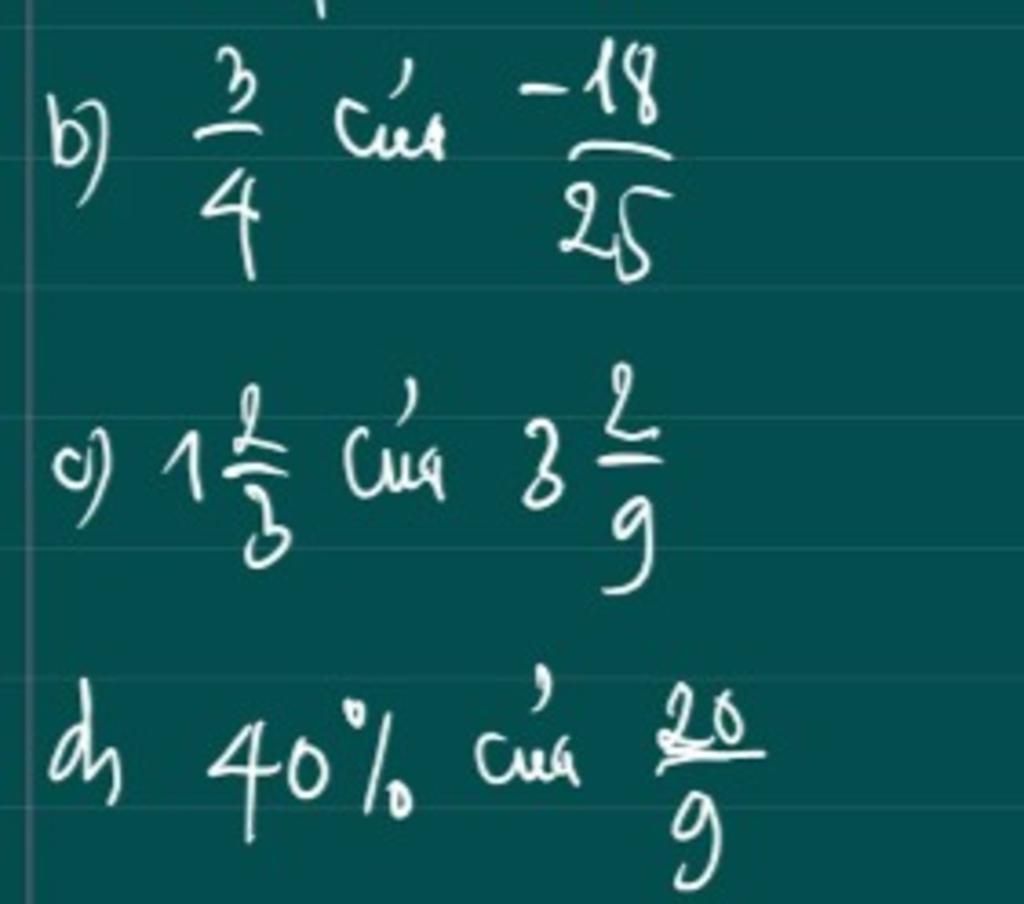 b) 3/4 của -18/25
c) 1 2/3 của 3 2/9
d) 40% của 20/9